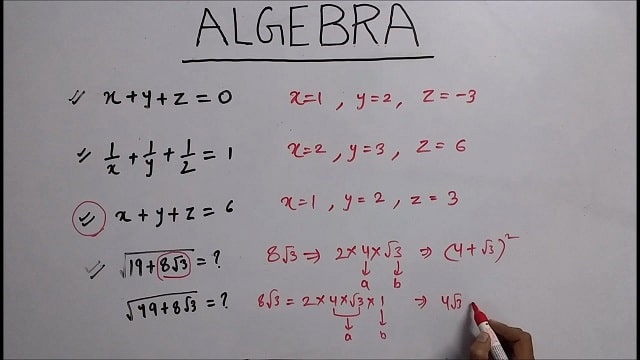 ALGEBRA
x+y+z=0 x=1, y=2, z=-3
1/x+1/y+1/z=1 x=2, y=3, z=6
x+y+z=6 x=1, y=2, z=3
√(19+8√3)=? 8√3 ⇒ 2×4×√3 ⇒ (4+√3)²
a b
√(49+8√3)=? 8√3=2×4×√3×1 ⇒ 4√3
a b